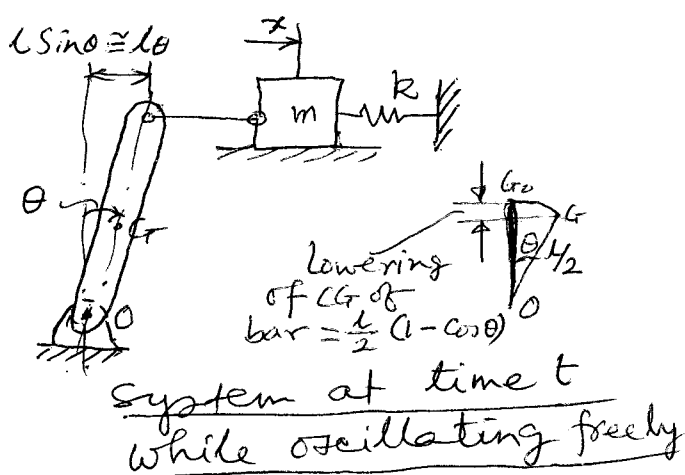 l Sinθ ≅ lθ
x
m
k
θ
G
O
G₀
G
θ
l/2
O
Lowering
of CG of
bar = l/2 (1 - Cosθ)
System at time t
while oscillating freely